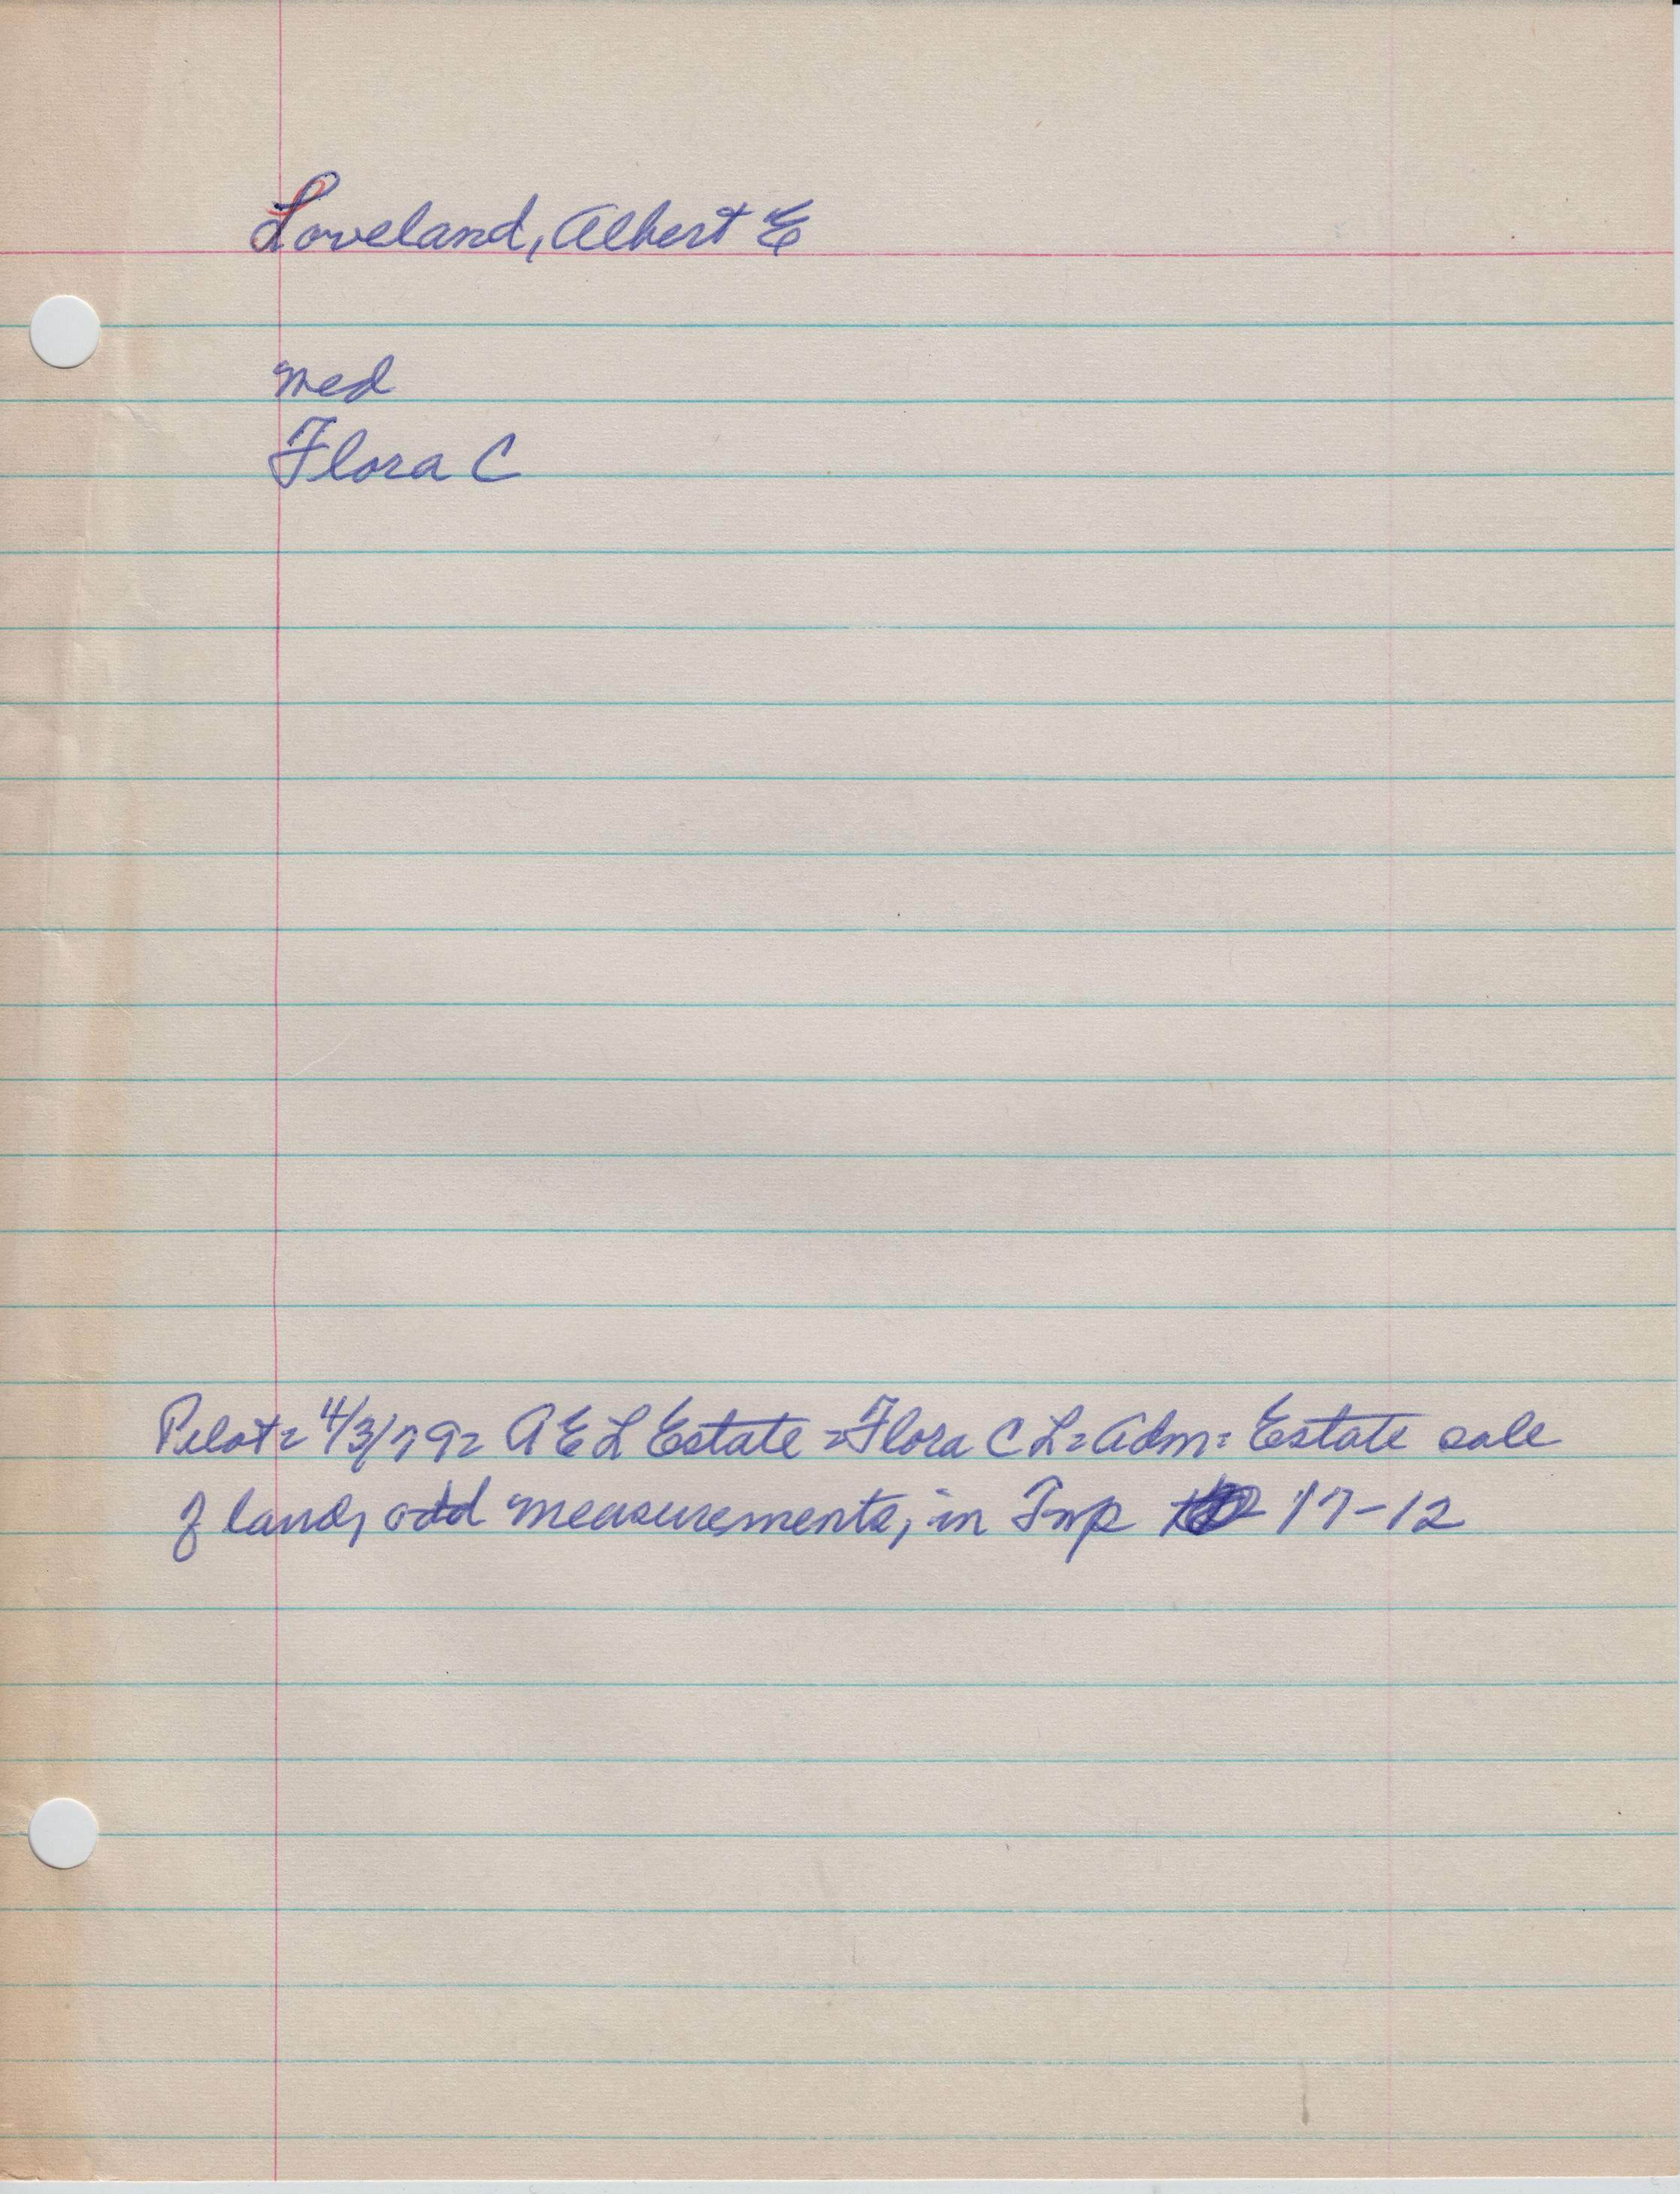 Loveland, Albert E
med
Flora C
Pilot = 4/3/79 = A E L Estate = Flora C L = Adm = Estate sale
of land, odd measurements, in Twp 17-12